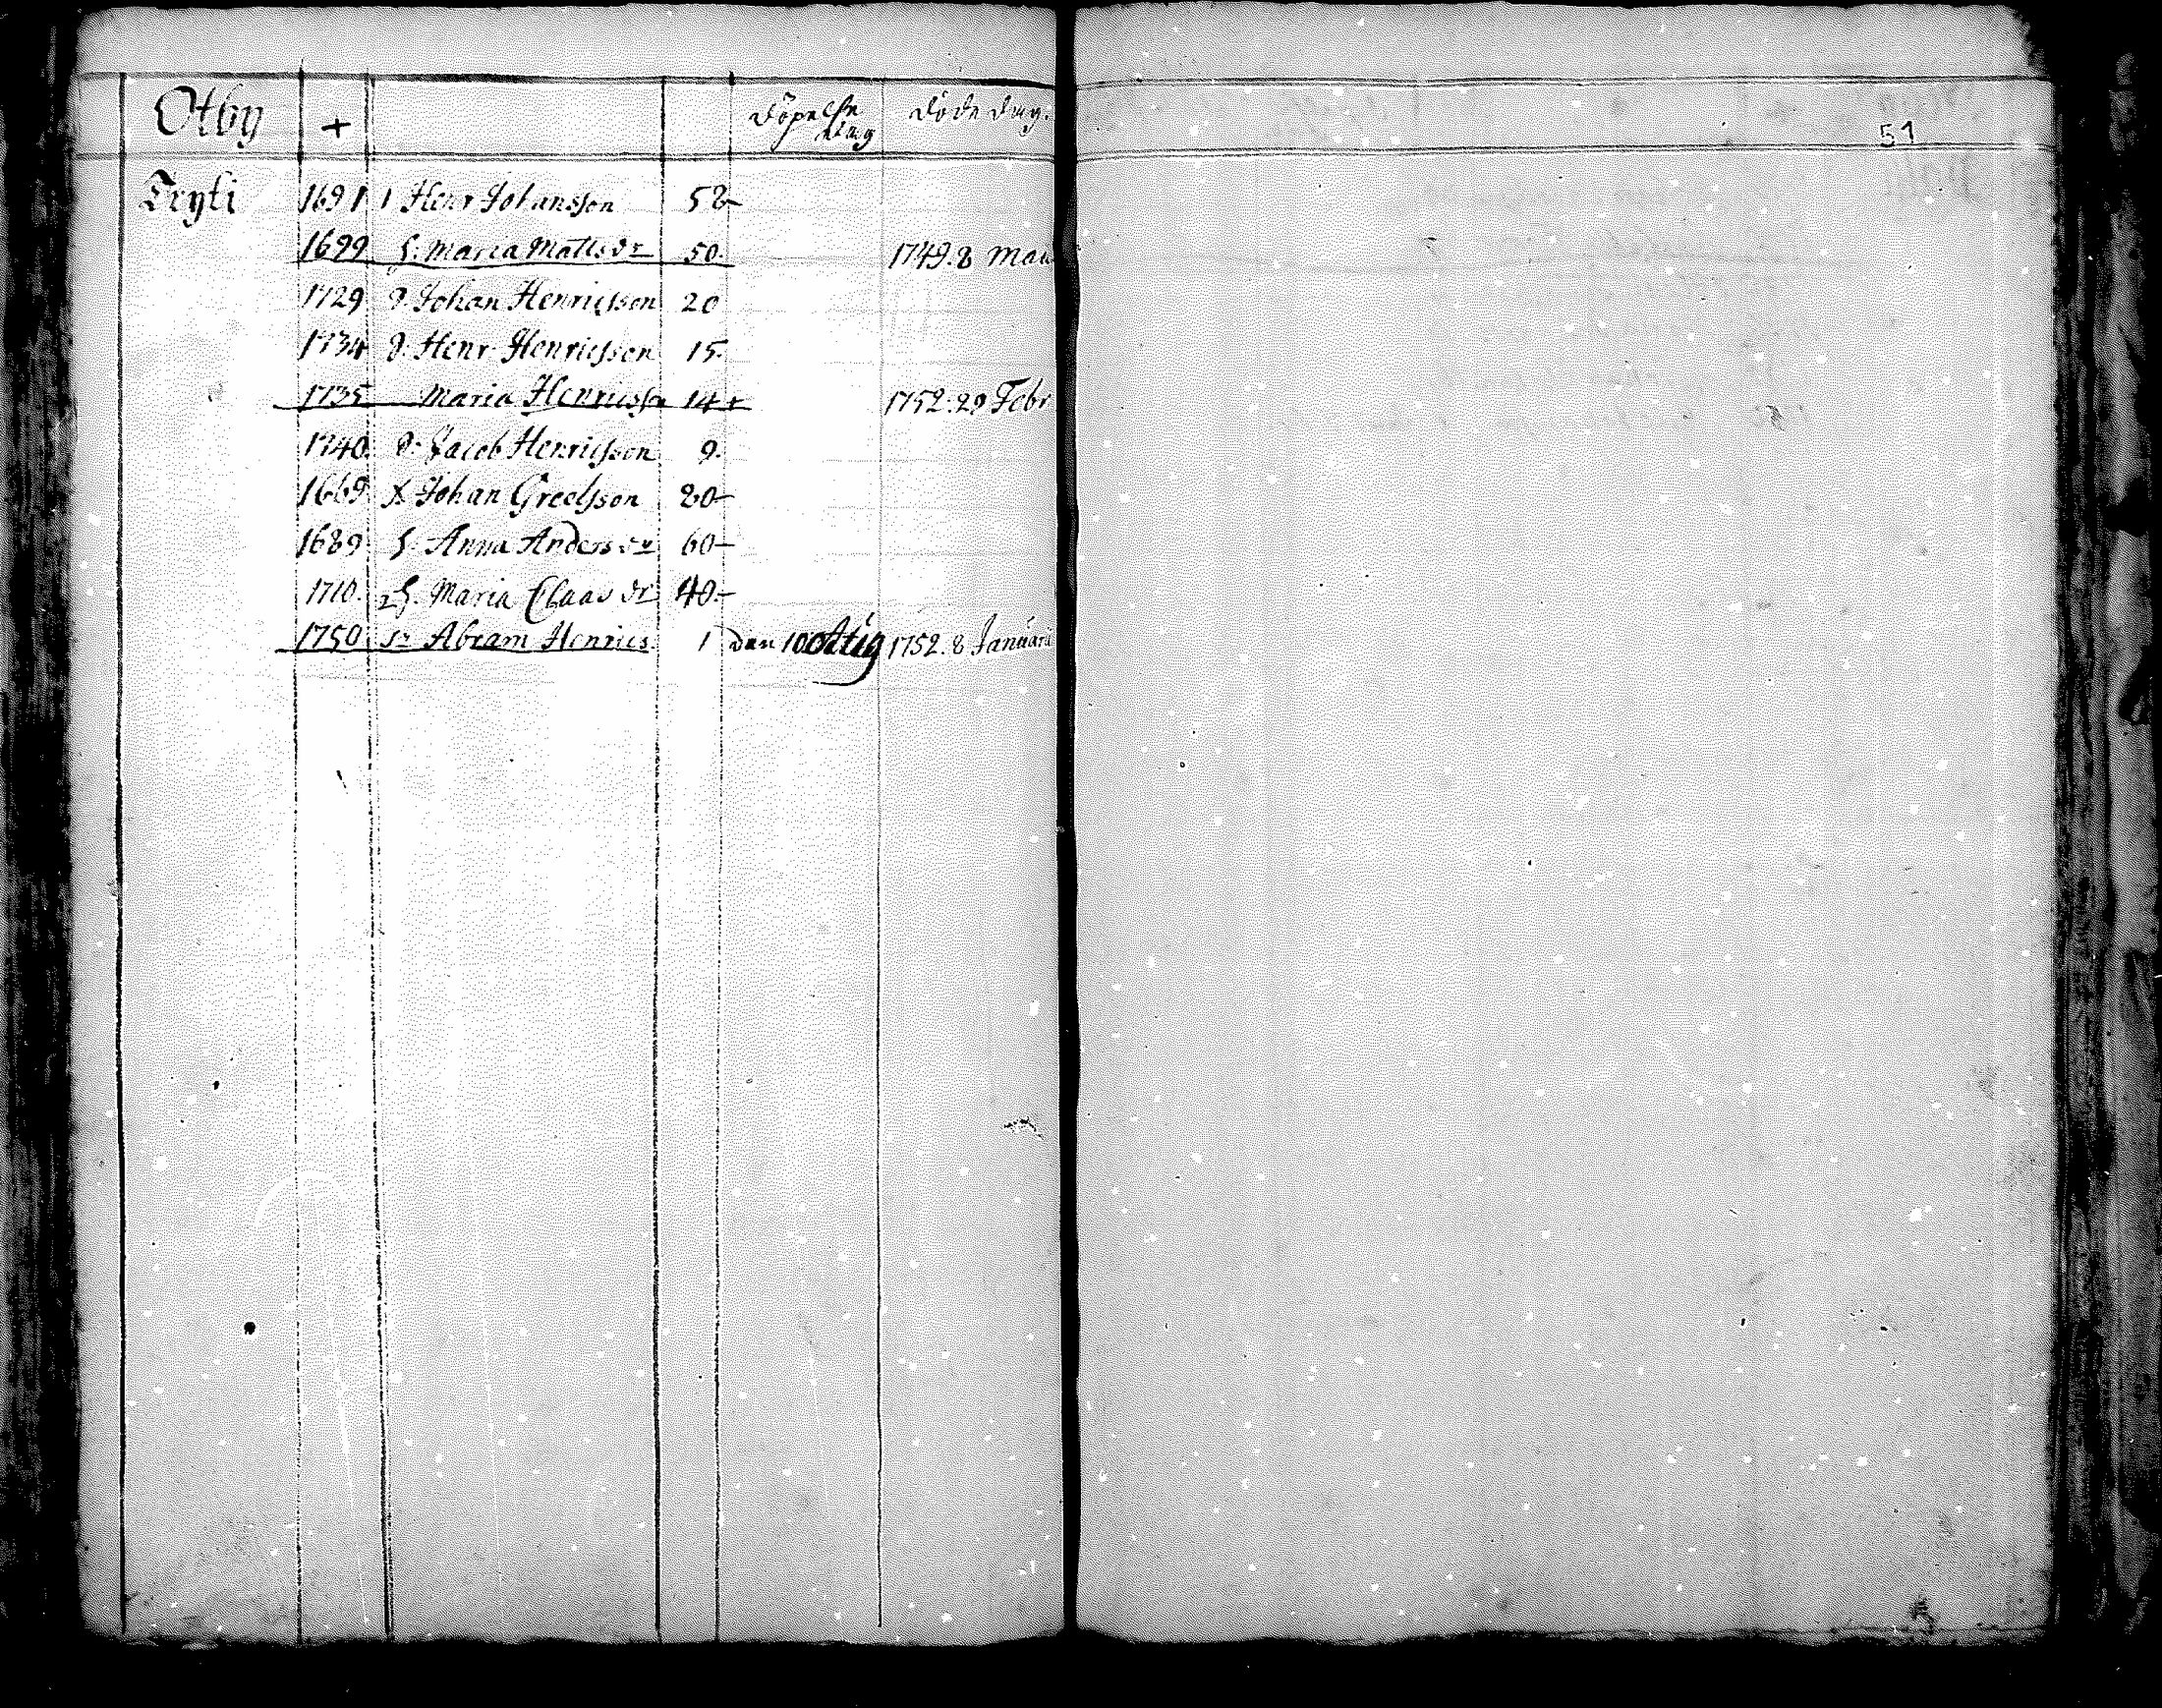 Otby + Döpelse dag Döde dag.
51
Tryti 1691 1 Henr Johansson 58
1699 H. Maria Matts dr 50. 1749. 8 Maii
1729 d. Johan Henricsson 20
1734 d. Henr Henricsson 15.
1735 Maria Henricss 14 1752. 29 Febr
1740. d. Jacob Henricsson 9.
1669. X Johan Greelsson 80
1689. H. Anna Anders dr 60
1710. 2 H. Maria Claas dr 40.
1750. Sn Abram Henrics. 1 den 10 1752. 8 Januarii